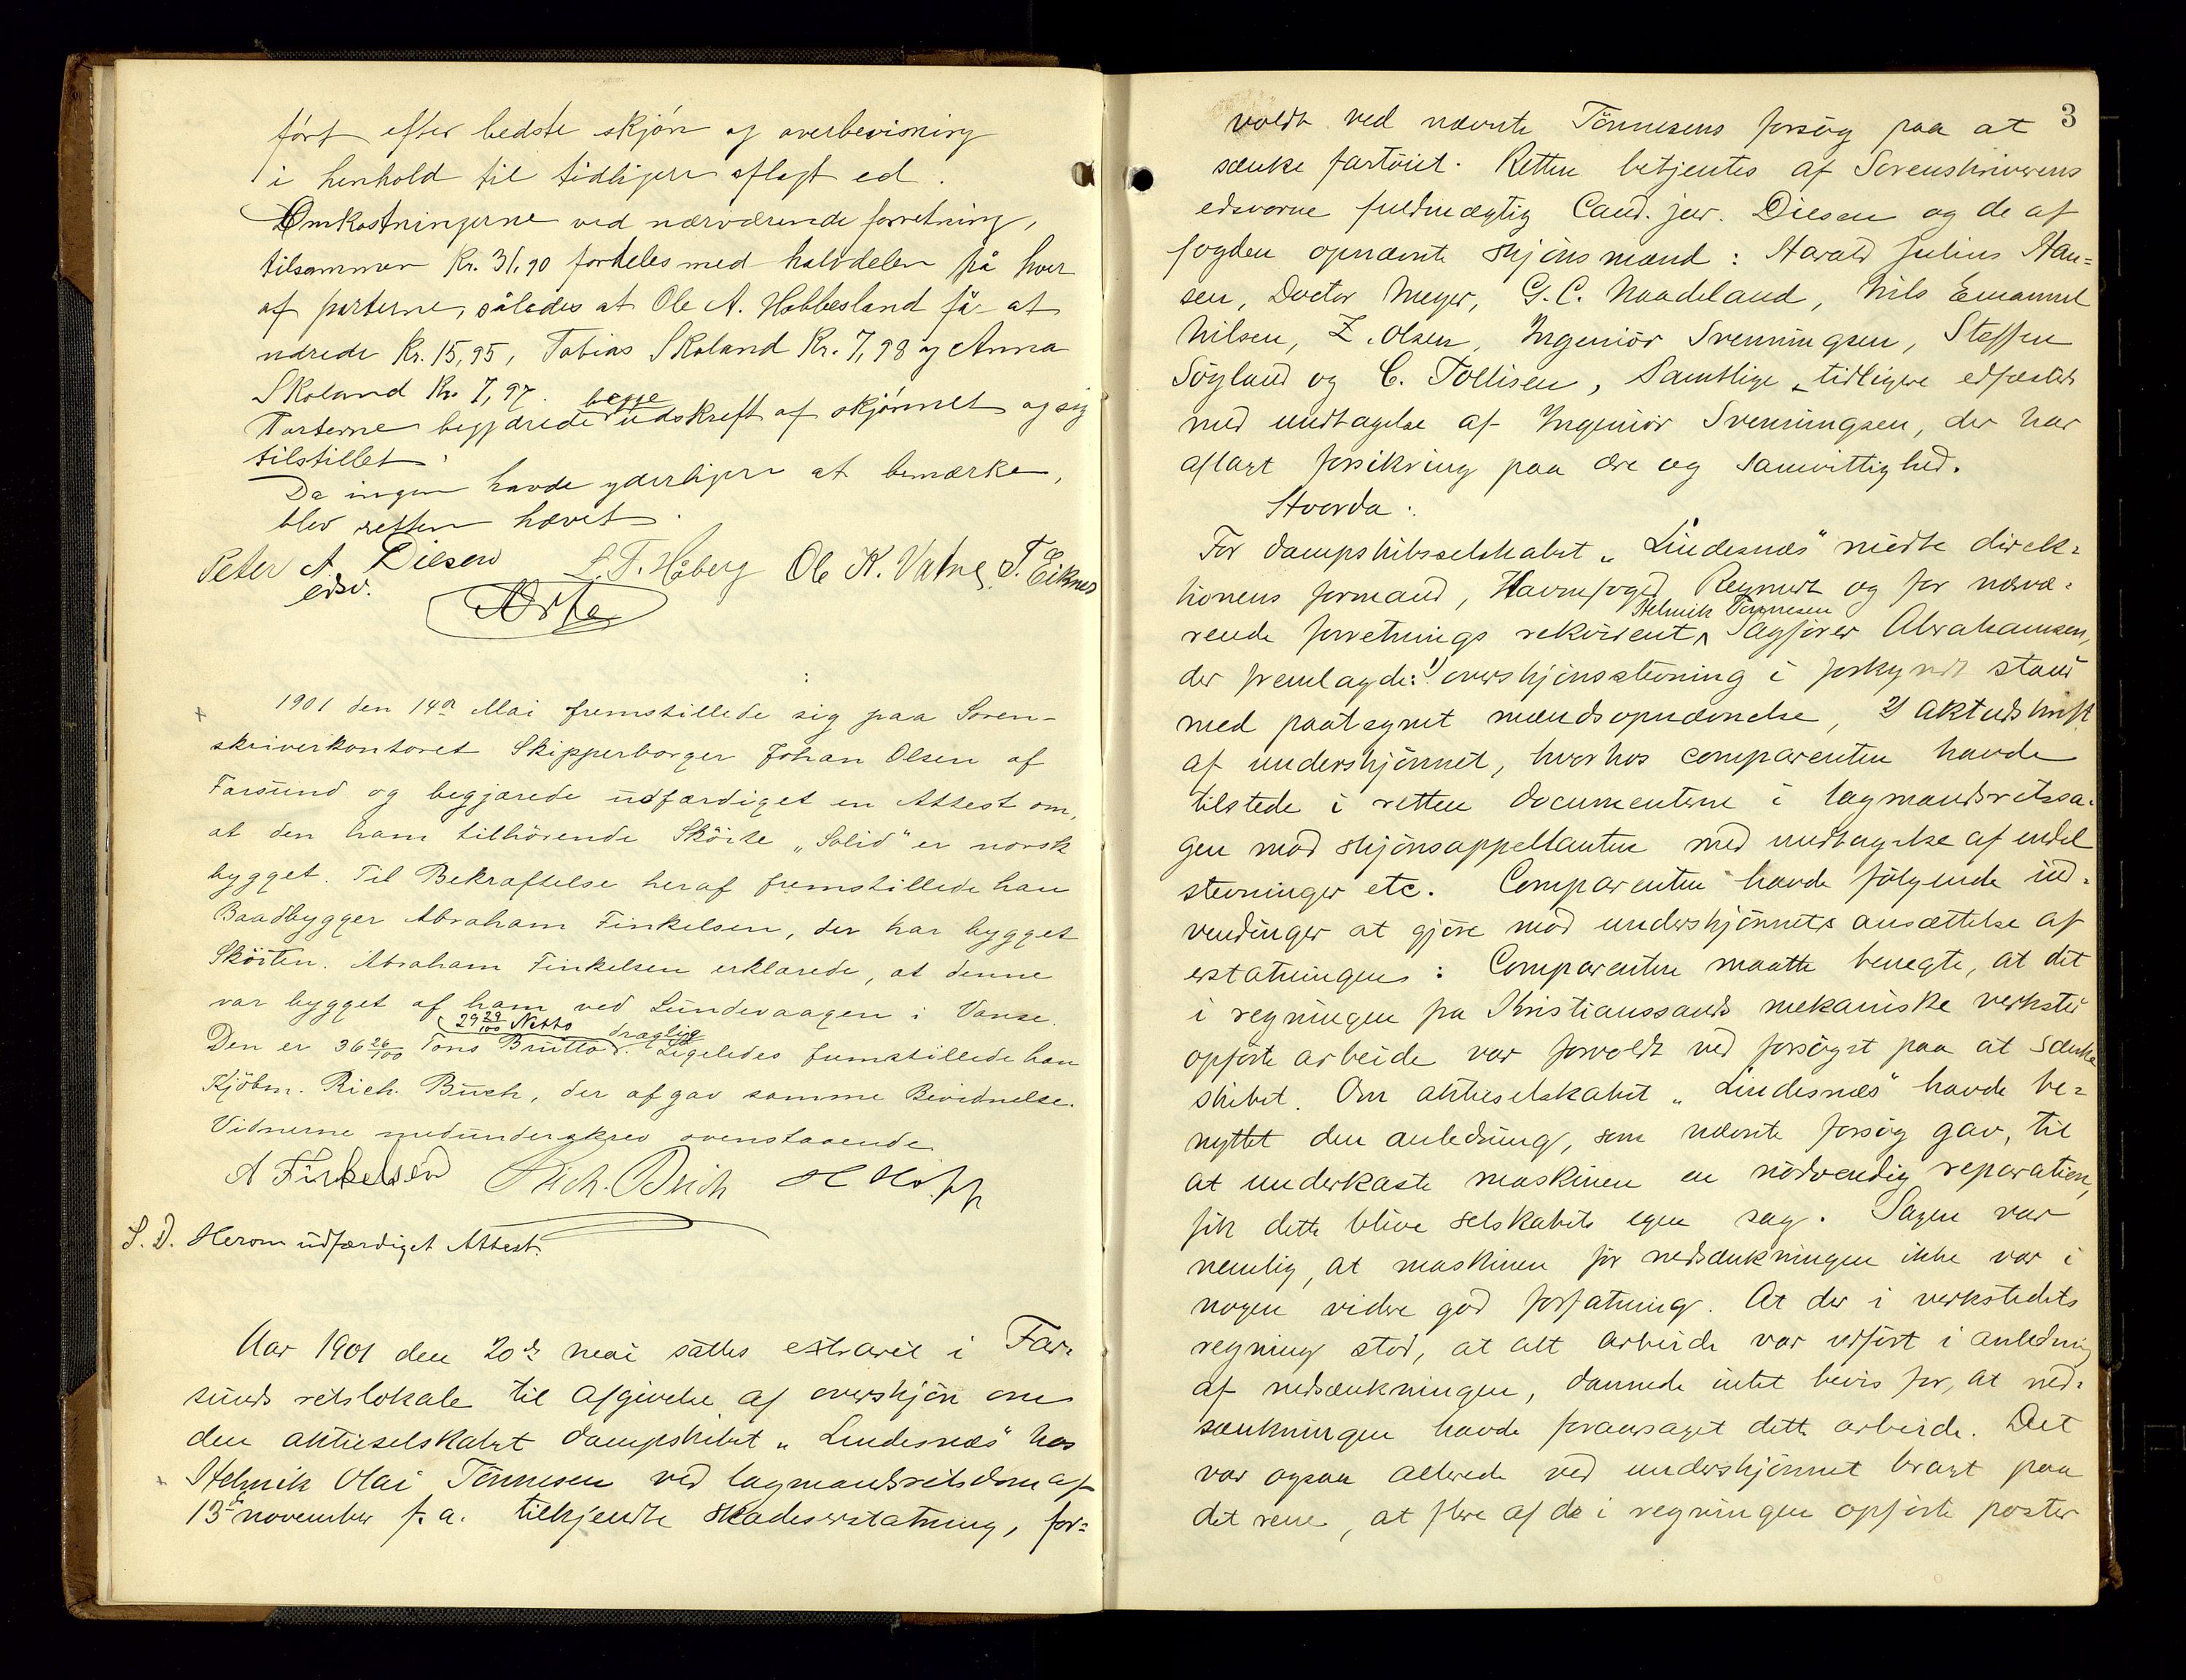 ført efter bedste skjøn og overbevisning
i henhold til tidligere aflagt ed.
Omkostningerne ved nærværende forretning,
tilsammen Kr. 31,90 fordeles med halvdelen på hver
af parterne, således at Ole A. Hobbesland får at
udrede Kr. 15,95, Tobias Skoland Kr. 7,98 og Anna
Skoland Kr. 7,97.
Parterne begjærede begge udskreft af skjønnet og sig
tilstillet.
Da ingen havde yderligere at bemærke,
blev retten hævet.
Peter A. Diesen L. T. Håberg Ole K. Vatne T. Eiknes
edsv.
1901 den 14de Mai fremstillede sig paa Soren-
skriverkontoret Skipperborger Johan Olsen af
Farsund og begjærede udfærdiget en Attest om,
at den ham tilhörende Sköite „Solid" er norsk
bygget. Til Bekræftelse heraf fremstillede han
Baadbygger Abraham Finkelsen, der har bygget
Sköiten. Abraham Finkelsen erklærede, at denne
var bygget af ham ved Lundevaagen i Vanse.
29 29/100 Netto
Den er 36 26/100 Tons Brutto dragtig. Ligeledes fremstillede han
Kjöbm. Rich. Buch, der afgav samme Bevidnelse.
Vidnerne medunderskrev ovenstaaende
A Finkelsen Rich. Buch H Hopp
S. D. Herom udfærdiget Attest.
Aar 1901 den 20de mai sattes extraret i Far-
sunds retslokale til afgivelse af overskjøn om
den aktieselskabet dampskibet „Lindesnæs" hos
Helmik Olai Tönnesen ved lagmandsretsdom af
13de november f. a. tilkjendte skadeserstatning, for-
3
voldt ved nævnte Tönnesens forsøg paa at
sænke fartöiet. Retten betjentes af Sorenskriverens
edsvorne fuldmægtig Cand. jur. Diesen og de af
fogden opnævnte skjönsmænd: Harald Julius Han-
sen, Doctor Meyer, G. C. Naadeland, Nils Emanuel
Nilsen, Z. Olsen, Ingeniör Svenningsen, Steffen
Sögland og C. Tollisen, Samtlige tidligere edfæstede
med undtagelse af Ingeniör Svenningsen, der har
aflagt forsikring paa ære og samvittighed.
Hvorda:
For dampskibsselskabet „Lindesnæs" mödte direk-
tionens formand, Havnefoged Reymert og for nærvæ-
rende forretnings rekvirent Helmik Tönnesen Sagförer Abrahamsen,
der fremlagde: 1) overskjönsstevning i forkyndt stand
med paategnet mændsopnævnelse, 2) aktudskrift
af underskjönnet, hvorhos comparenten havde
tilstede i retten documenterne i lagmandsretssa-
gen mod skjönsappellanten med undtagelse af endel
stevninger etc. Comparenten havde fölgende ind-
vendinger at gjöre mod underskjönnets ansættelse af
erstatningen: Comparenten maatte benegte, at det
i regningen fra Kristianssands mekaniske verksted
opförte arbeide var forvoldt ved forsöget paa at sænke
skibet. Om aktieselskabet „Lindesnæs" havde be-
nyttet den anledning, som nævnte forsög gav, til
at underkaste maskinen en nödvendig reparation,
fik dette blive selskabets egen sag. Sagen var
nemlig, at maskinen för nedsænkningen ikke var i
nogen videre god forfatning. At der i verkstedets
regning stod, at alt arbeide var udfört i anledning
af nedsænkningen, dannede intet bevis for, at ned-
sænkningen havde foraarsaget dette arbeide. Det
var ogsaa allerede ved underskjönnet bragt paa
det rene, at flere af de i regningen opförte poster